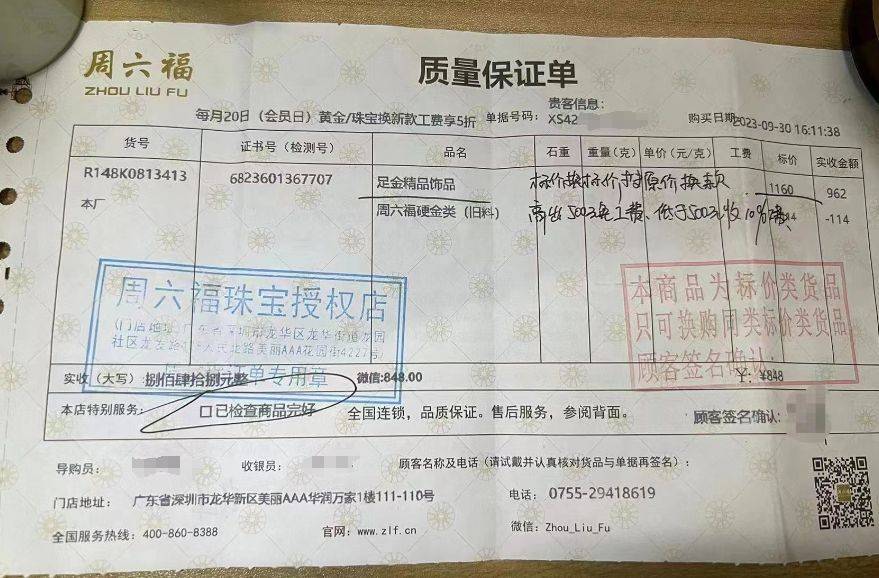 周六福
ZHOU LIU FU
质量保证单
贵客信息:
每月20日（会员日）黄金/珠宝换新款工费享5折
单据号码: XS42
购买日期: 2023-09-30 16:11:38
货号 证书号（检测号） 品名 石重 重量(克) 单价(元/克) 工费 标价 实收金额
R148K0813413 6823601367707 足金精品饰品 1160 962
本厂 周六福硬金类（旧料） -114
标价换标价 按原价换款
高出500免工费、低于500收10%
周六福珠宝授权店
(门店地址:广东省深圳市龙华区龙华街道龙园
社区龙发路 人民北路美丽AAA花园街4227号)
单专用章
本商品为标价类货品
只可换购同类标价类货品
顾客签名确认:
实收（大写）: 捌佰肆拾捌元整 微信:848.00 ¥: ¥848
本店特别服务: 口已检查商品完好 全国连锁，品质保证。售后服务，参阅背面。 顾客签名确认:
导购员: 收银员: 顾客名称及电话（请试戴并认真核对货品与单据再签名）:
门店地址: 广东省深圳市龙华新区美丽AAA华润万家1楼111-110号 电话: 0755-29418619
全国服务热线: 400-860-8388 官网: www.zlf.cn 微信: Zhou_Liu_Fu